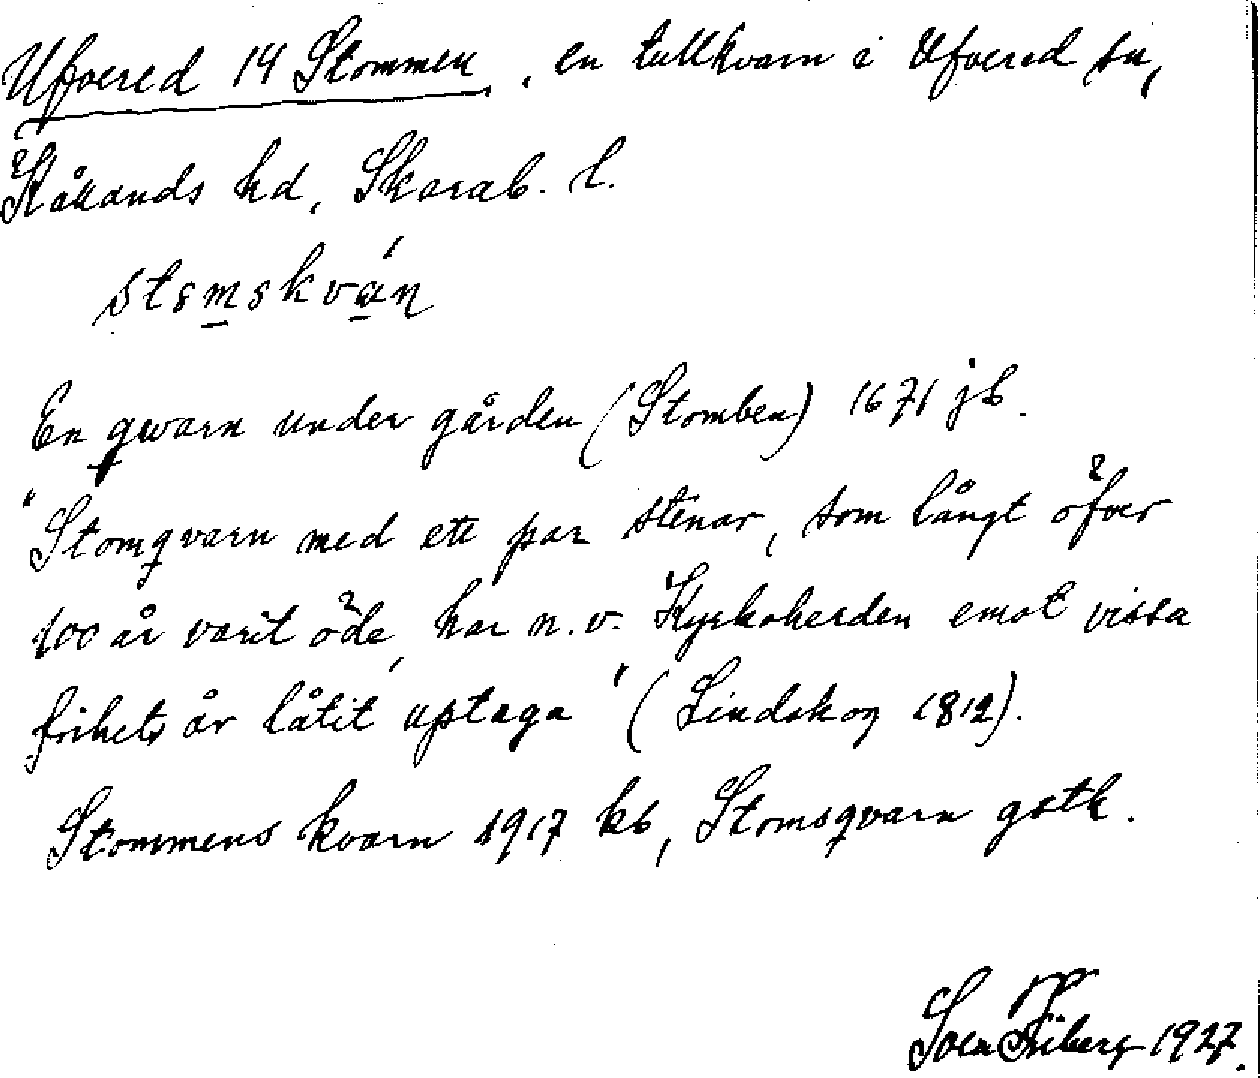 Ufvered 14 Stommen, en tullkvarn i Ufvered sn,
Kåkands hd, Skarab. l.
stsmskván
En qwarn under gården (Stomben) 1671 jb.
"Stomqvarn med ett par stenar, som långt öfver
100 år varit öde, har n.v. Kyrkoherden emot vissa
frihets år låtit uptaga" (Lindskog 1812).
Stommens kvarn 1917 kb, Stomsqvarn gstk.
Sven Friberg 1927.